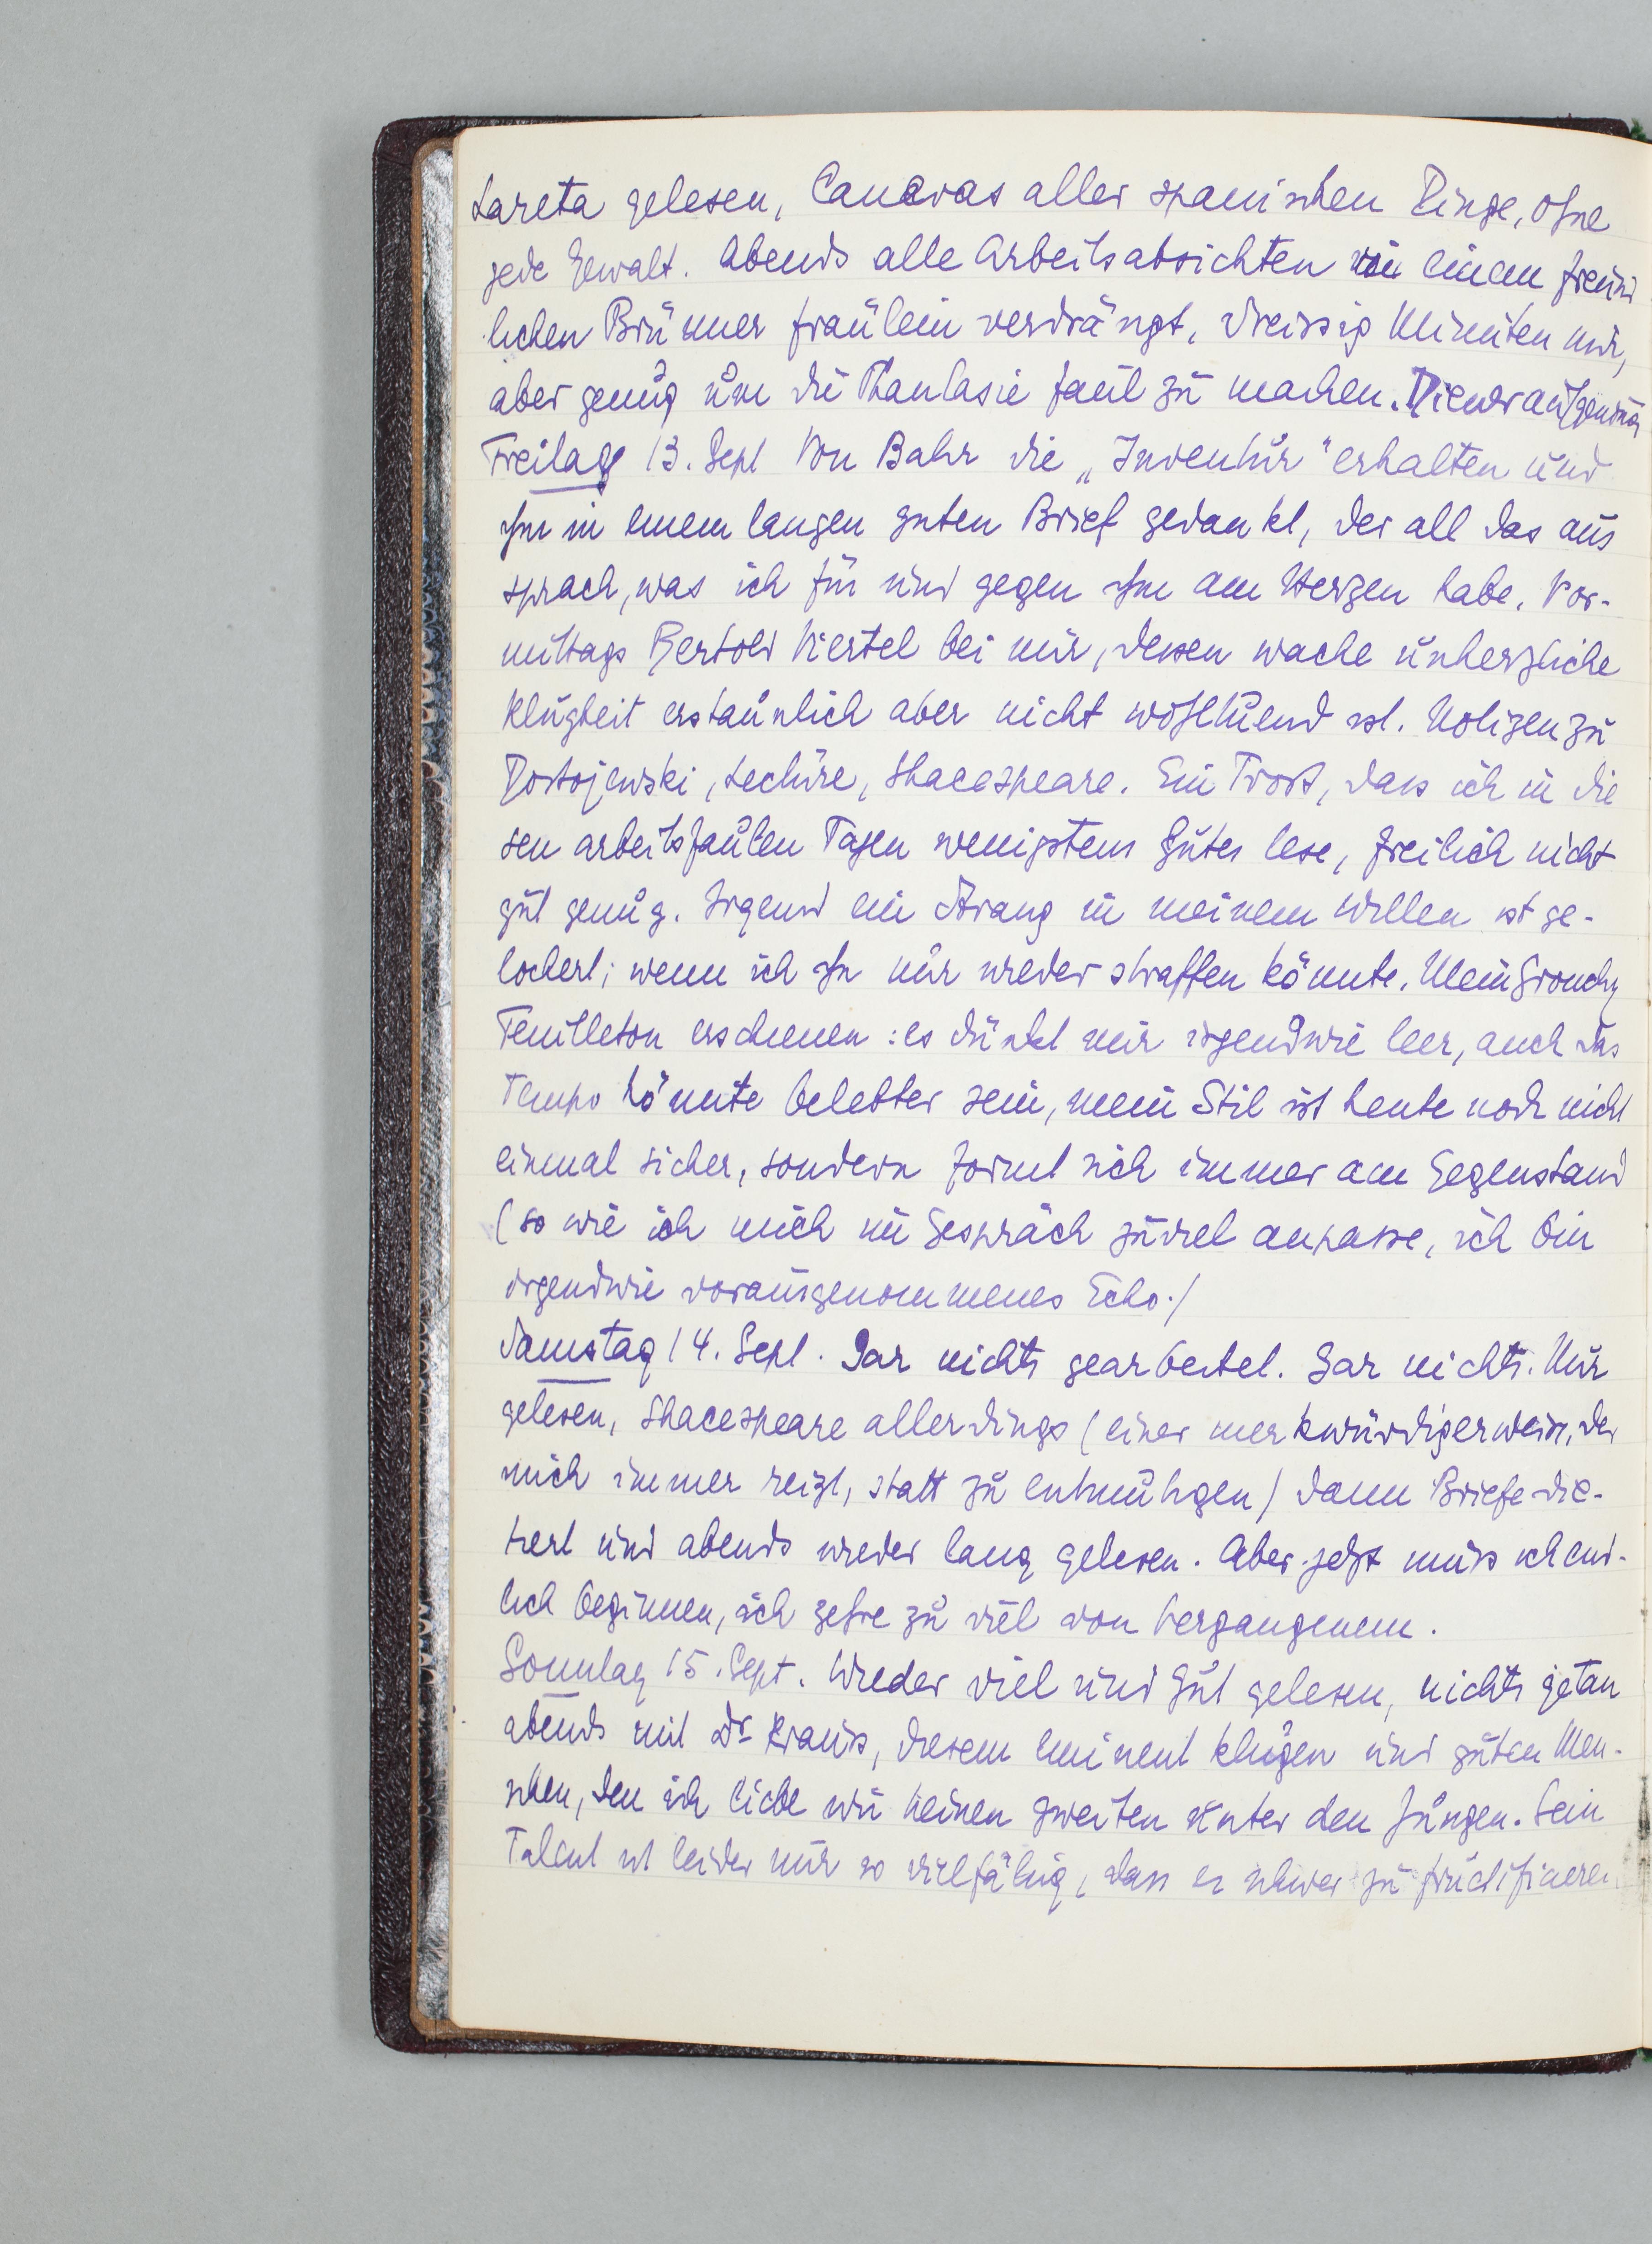 Lareta gelesen, Canevas aller spanischen Dinge, ohne
jede Gewalt. Abends alle Arbeitsabsichten von einem freund
lichen Brünner fraülein verdrängt, dreissig Minuten nur,
aber genug um die Phantasie faul zu machen. Diener
Freitag 13. Sept Von Bahr die „Inventur" erhalten und
ihm in einem langen guten Brief gedankt, der all das aus
sprach, was ich für und gegen ihn am Herzen habe. Vor-
mittags Bertold Viertel bei mir, dessen wache unherzliche
Klugheit erstaunlich aber nicht wohltuend ist. Notizen zu
Dostojewski, Lectüre, Shacespeare. Ein Trost, dass ich in die
sen arbeitsfaulen Tagen wenigstens Gutes lese, freilich nicht
gut genug. Irgend ein Strang in meinem Willen ist ge-
lockert; wenn ich ihn nur wieder straffen könnte. Mein Grouchy
Feuilleton erschienen: es dünkt mir irgendwie leer, auch das
Tempo könnte belebter sein, mein Stil ist heute noch nicht
einmal sicher, sondern formt sich immer am Gegenstand
(so wie ich mich im Gespräch zuviel anpasse, ich bin
irgendwie vorausgenommenes Echo.)
Samstag 14. Sept. Gar nichts gearbeitet. Gar nichts. Nur
gelesen, Shacespeare allerdings (einer merkwürdigerweise, der
mich immer reizt, statt zu entmutigen) dann Briefe dic-
tiert und abends wieder lang gelesen. Aber jetzt muss ich end-
lich beginnen, ich zehre zu viel von Vergangenem.
Sonntag 15. Sept. Wieder viel und gut gelesen, nichts getan
abends mit Dr Krauss, diesem eminent klugen und guten Men-
schen, den ich liebe wie keinen zweiten unter den Jungen. Sein
Talent ist leider nur so vielfältig, dass er schwer zu fructificieren